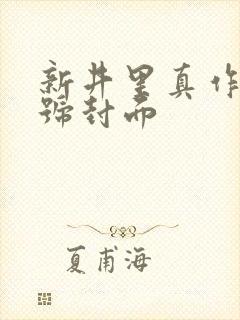 新井里真作
号封面
夏甫海